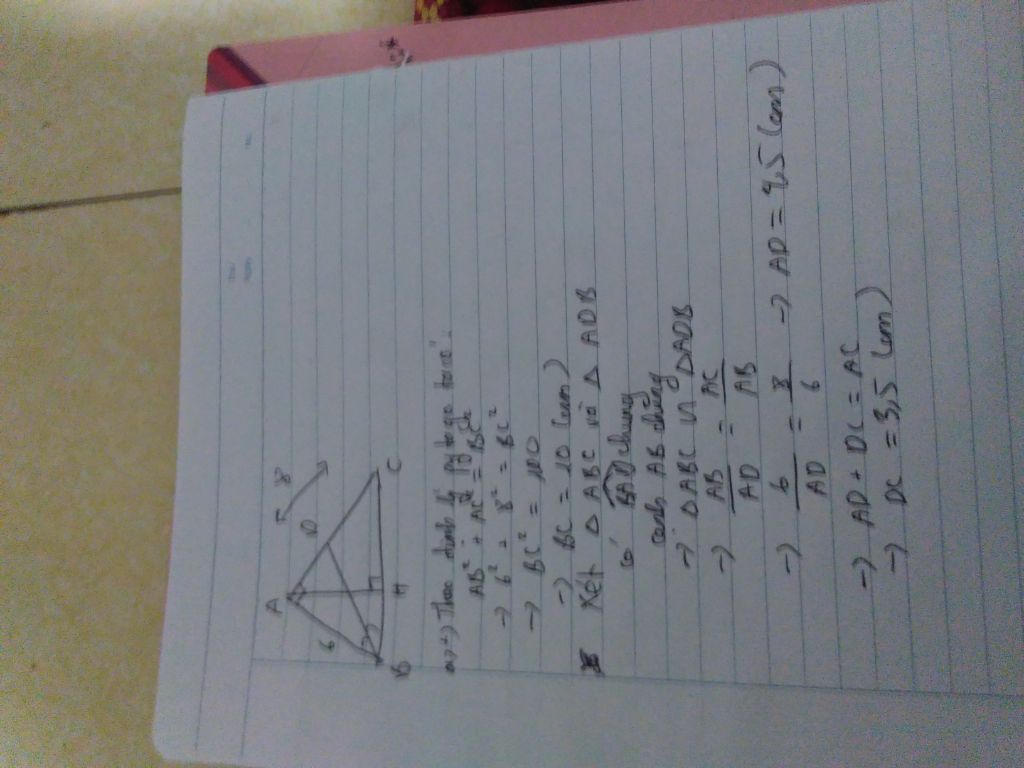 A
6
8
D
B
H
C
a) → Theo định lý "pytago ta có":
AB² + AC² = BC²
→ 6² + 8² = BC²
→ BC² = 100
→ BC = 10 (cm)
Xét Δ ABC và Δ ADB
có BAD chung
cạnh AB chung
→ ΔABC ∽ ΔADB
→ AB/AD = AC/AB
→ 6/AD = 8/6 → AD = 4,5 (cm)
→ AD + DC = AC
→ DC = 3,5 (cm)